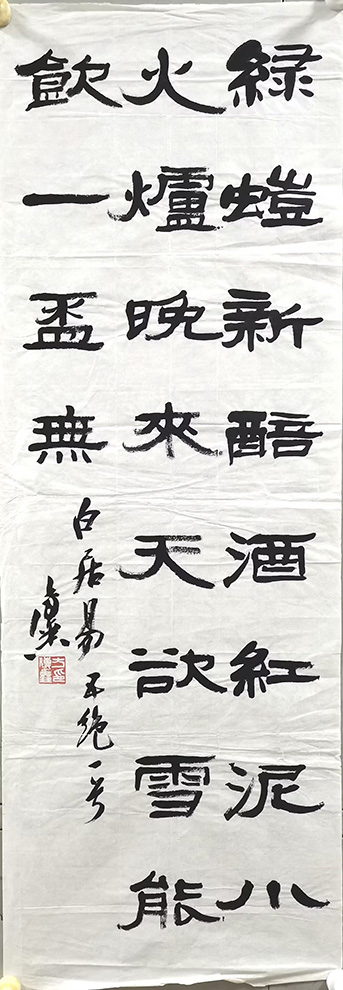 緑螘新醅酒紅泥小
火爐晚來天欲雪能
飲一盃無
白居易五绝一首